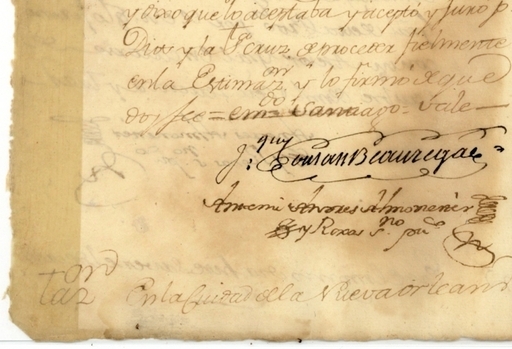 y dixo que lo aceptaba y acepto y Juro p.
Dios y la Cruz de proceder fielmente
en la Estimaz.on y lo firmó de que
doy fee = em.do Santiago = Vale
J.n Toutant Beauregard
Antemi Andres Almonester
y Roxas S.no pu.co
taz.on
En la Ciudad de la Nueva Orleans